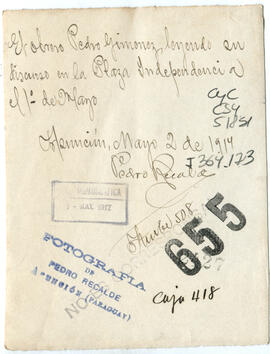 El obrero Pedro Gimenez, leyendo su
discurso en la Plaza Independencia
el 1º de Mayo
Asunción, Mayo 2 de 1917
Pedro Recalde
CyC
I 364.173
MAY. 1917
508
655
FOTOGRAFIA
DE
PEDRO RECALDE
ASUNCIÓN (PARAGUAY)
Caja 418